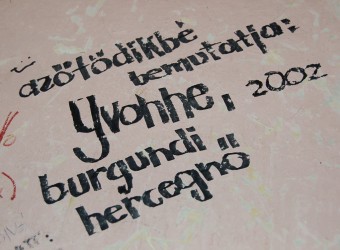 azötödikbé
bemutatja:
Yvonne, 2002
burgundi
hercegnő